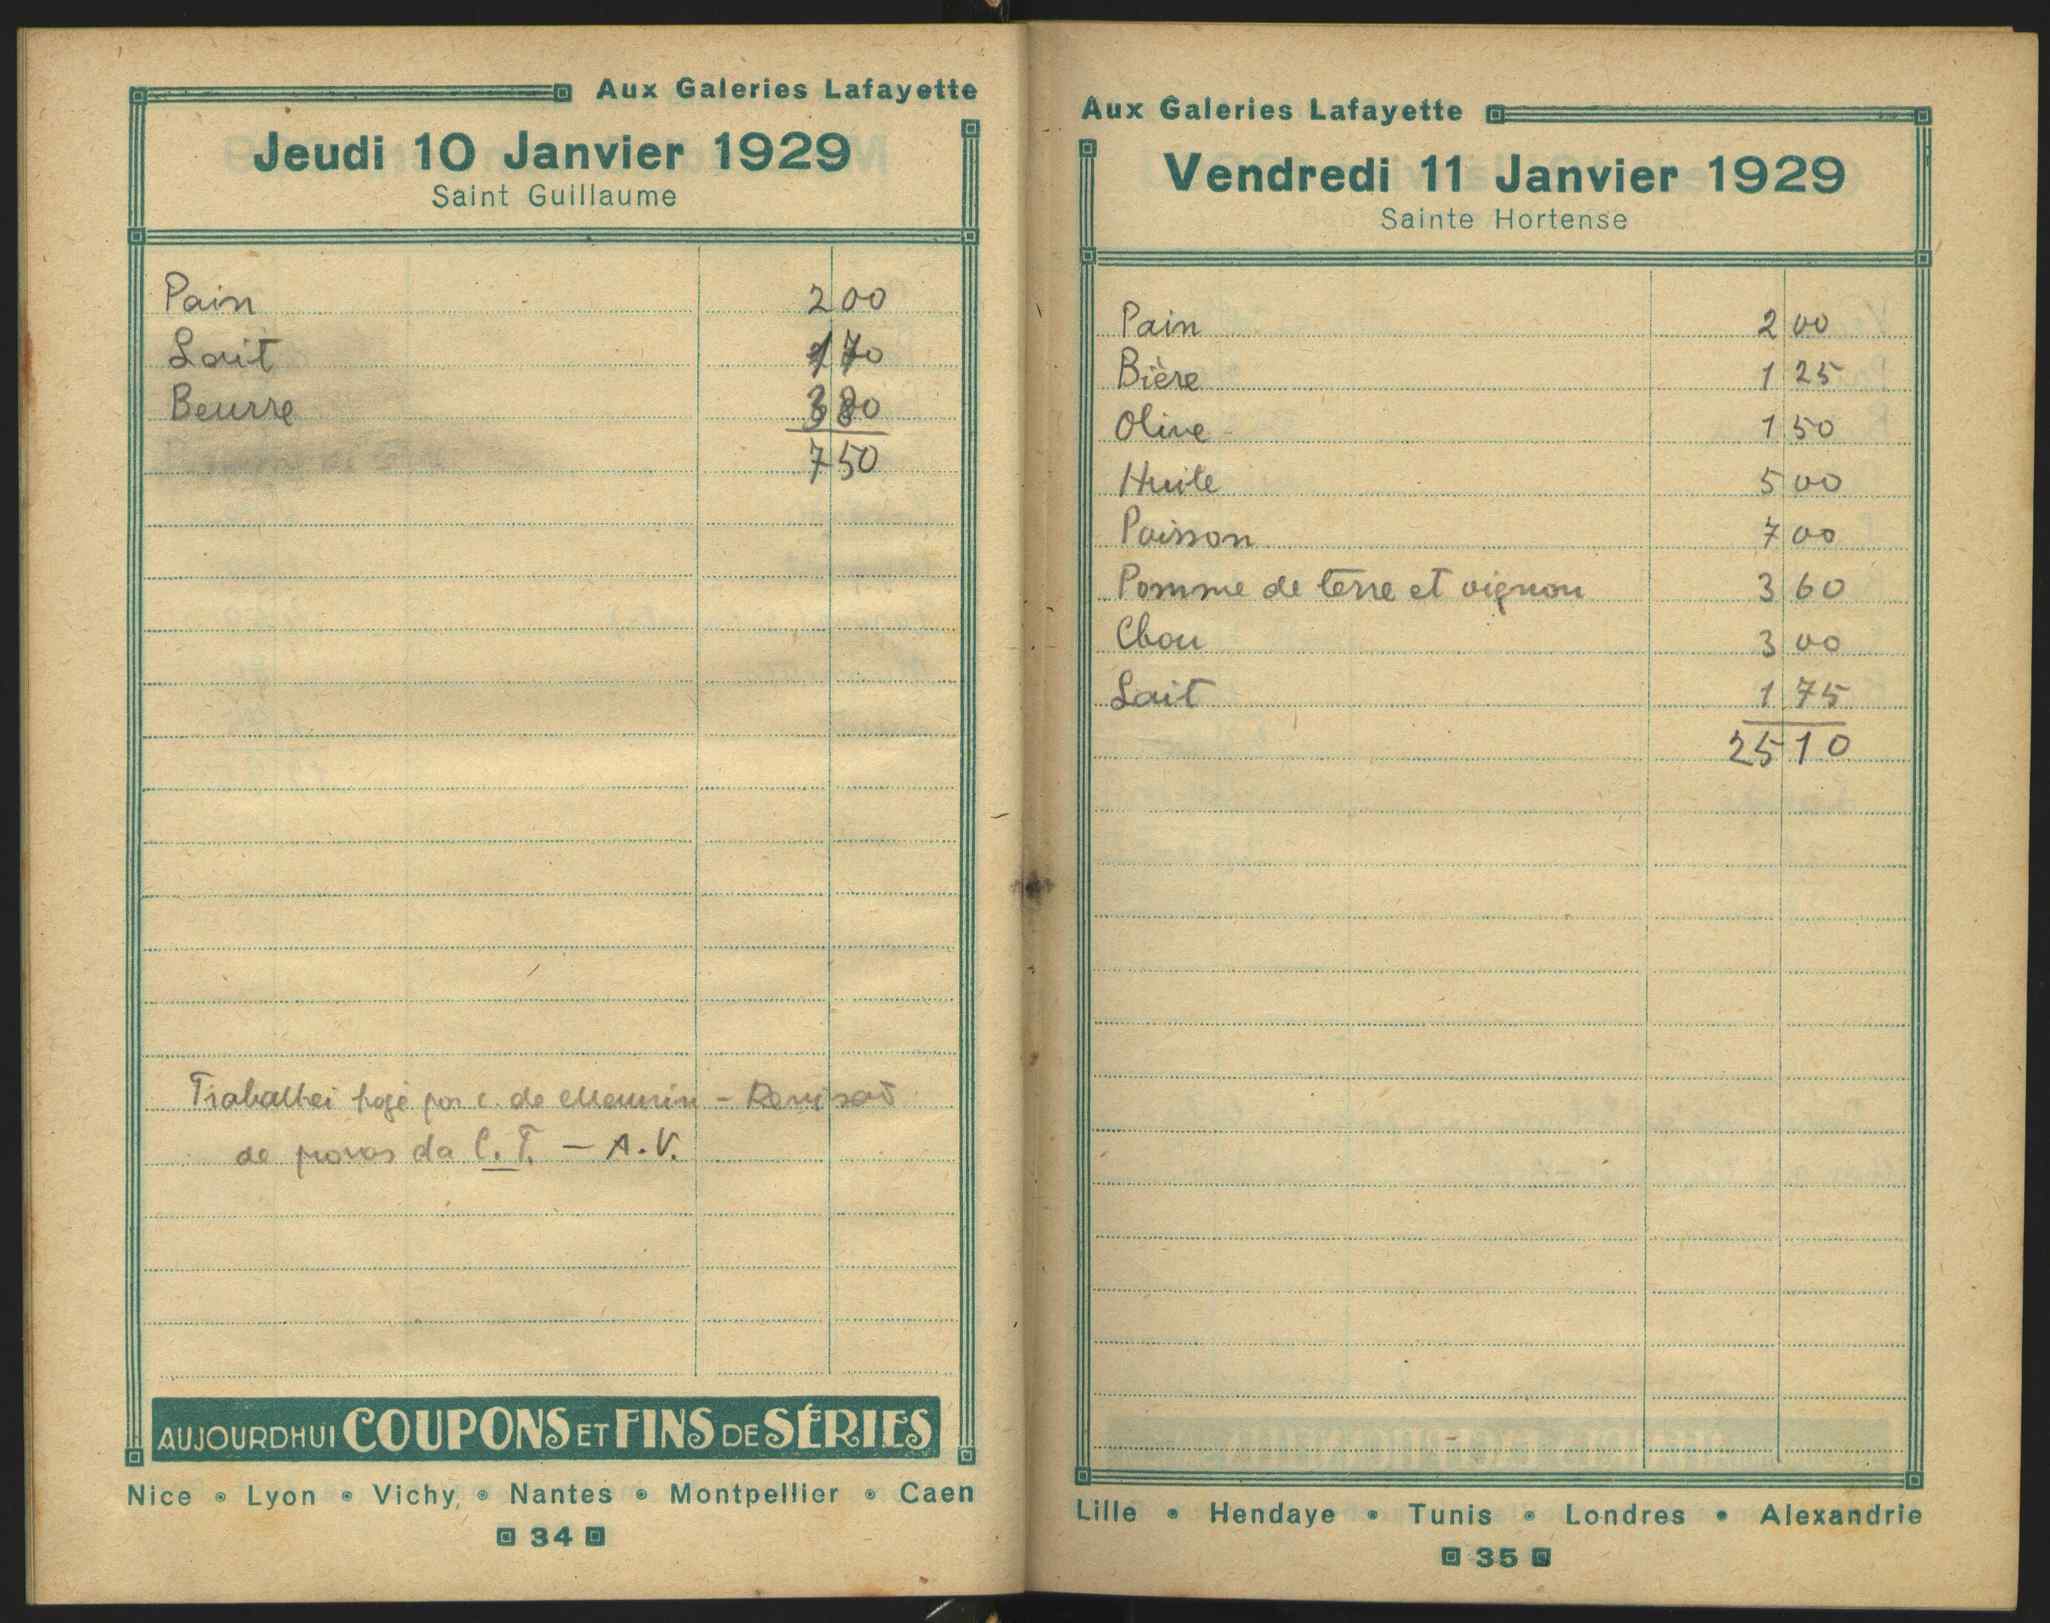 Aux Galeries Lafayette
Jeudi 10 Janvier 1929
Saint Guillaume
Pain 2 00
Lait 1 70
Beurre 3 80
7 50
Trabalhei hoje por c. de - Revisão
de provas da C. T. - A. V.
AUJOURDHUI COUPONS ET FINS DE SÉRIES
Nice • Lyon • Vichy • Nantes • Montpellier • Caen
34
Aux Galeries Lafayette
Vendredi 11 Janvier 1929
Sainte Hortense
Pain 2 00
Bière 1 25
Olive 1 50
Huile 5 00
Poisson 7 00
Pomme de terre et oignon 3 60
Chou 3 00
Lait 1 75
25 10
Lille • Hendaye • Tunis • Londres • Alexandrie
35